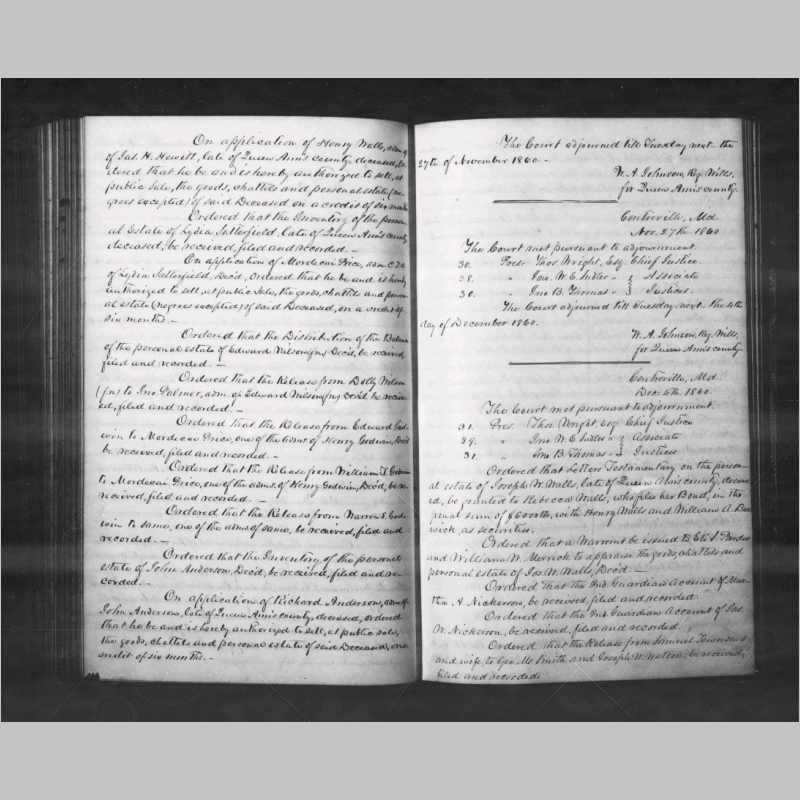 On application of Henry Walls, adm. of
of Jas. H. Hewitt, late of Queen Ann's county, deceased, or
dered that he be and is hereby authorized to sell, at
public sale, the goods, chattels and personal estate, (ne
groes excepted) of said Deceased on a credit of six months.
Ordered that the Inventory of the person
al Estate of Lydia Satterfield, late of Queen Ann's county
deceased, be received, filed and recorded. —
On application of Mordecai Price, adm.
of Lydia Satterfield, Dec'd, ordered that he be and is hereby
authorized to sell, at public sale, the goods, chattels and person
al estate (negroes excepted) of said Deceased, on a credit of
six months. —
Ordered that the Distribution of the Balance
of the personal estate of Edward Wilson (fn) Dec'd, be received
filed and recorded. —
Ordered that the Release from Dolly Wilson
(fn) to Jno. Palmer, adm. of Edward Wilson (fn) Dec'd be receiv
ed, filed and recorded. —
Ordered that the Release from Edward God
win to Mordecai Price, one of the adms. of Henry Godwin, Dec'd
be received, filed and recorded. —
Ordered that the Release from William T. Godwin
to Mordecai Price, one of the adms. of Henry Godwin, Dec'd, be re
ceived, filed and recorded. —
Ordered that the Release from Warren S. God
win to same, one of the adms. of same, be received, filed and
recorded. —
Ordered that the Inventory of the personal
estate of John Anderson, Dec'd, be received, filed and re
corded. —
On application of Richard Anderson, adm. of
John Anderson, late of Queen Ann's county, deceased, ordered
that he be and is hereby authorized to sell, at public sale,
the goods, chattels and personal estate of said Deceased, on a
credit of six months. —
The Court adjourned till Tuesday next the
27th of November 1860. —
W. A. Johnson, Reg. Wills,
for Queen Ann's county.
Centreville, Md.
Nov. 27th 1860
The Court met pursuant to adjournment.
30. Pres. Thos. Wright, Esq. Chief Justice.
28. " Jno. W. E. Sudler " } Associate
30. " Jno B. Thomas " } Justices.
The Court adjourned till Tuesday next the 4th
day of December 1860.
W. A. Johnson, Reg. Wills,
for Queen Ann's county
Centreville, Md.
Dec. 4th 1860.
The Court met pursuant to adjournment.
31. Pres. Thos. Wright, Esq. Chief Justice
29. " Jno W. E. Sudler " } Associate
31. " Jno B. Thomas " } Justices
Ordered that Letters Testamentary on the person
al estate of Joseph W. Walls, late of Queen Ann's county, deceas
ed, be granted to Rebecca Walls, who files her Bond, in the
penal sum of $6000th, with Henry Walls and William A. Bar
wick, as securities.
Ordered that a Warrant be issued to
and William W. Merrick to appraise the goods, chattels and
personal estate of Jos. W. Walls, Dec'd —
Ordered that the Guardian Account of Mar
tha A. Nickerson, be received, filed and recorded.
Ordered that the Guardian Account of Jas.
W. Nickerson, be received, filed and recorded.
Ordered that the Release from Samuel Townsend
and wife, to Geo. M. Smith and Joseph W. Watson, be received,
filed and recorded.